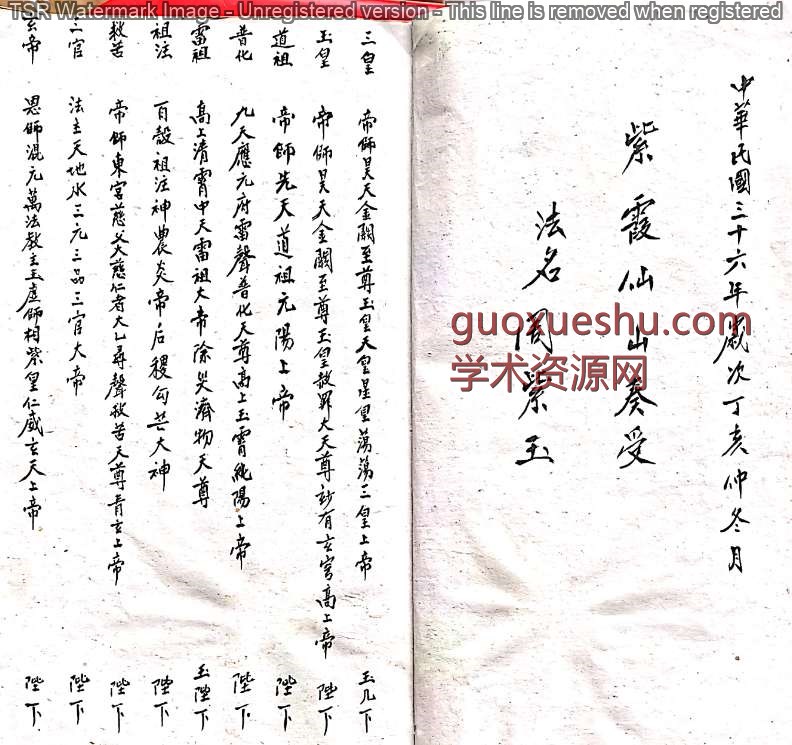 TSR Watermark Image - Unregistered version - This line is removed when registered
中華民國三十六年歲次丁亥仲冬月
紫霞仙山奏受
法名周紫玉
guoxueshu.com
学术资源网
三皇 帝師昊天金闕至尊玉皇天皇星皇蕩蕩三皇上帝 玉几下
玉皇 帝師昊天金闕至尊玉皇赦罪大天尊妙有玄穹高上帝 陛下
道祖 帝師先天道祖元陽上帝 陛下
普化 九天應元府雷聲普化天尊高上玉霄純陽上帝 陛下
雷祖 高上清霄中天雷祖大帝除災濟物天尊 玉陛下
祖注 百穀祖注神農炎帝后稷勾芒大神 陛下
救苦 帝師東宮慈父大慈仁者太乙尋聲救苦天尊青玄上帝 陛下
三官 法主天地水三元三品三官大帝 陛下
玄帝 恩師混元萬法教主玉虛師相紫皇仁威玄天上帝 陛下